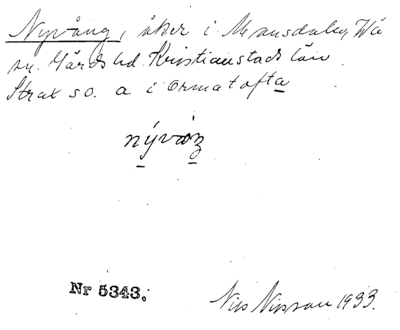 Nyvång, åker i Mansdala, Wä
sn. Gärds hd. Kristianstads län.
Strax so. a i Ormatofta
nývàŋ
Nr 5343.
Nils Nilsson 1933.